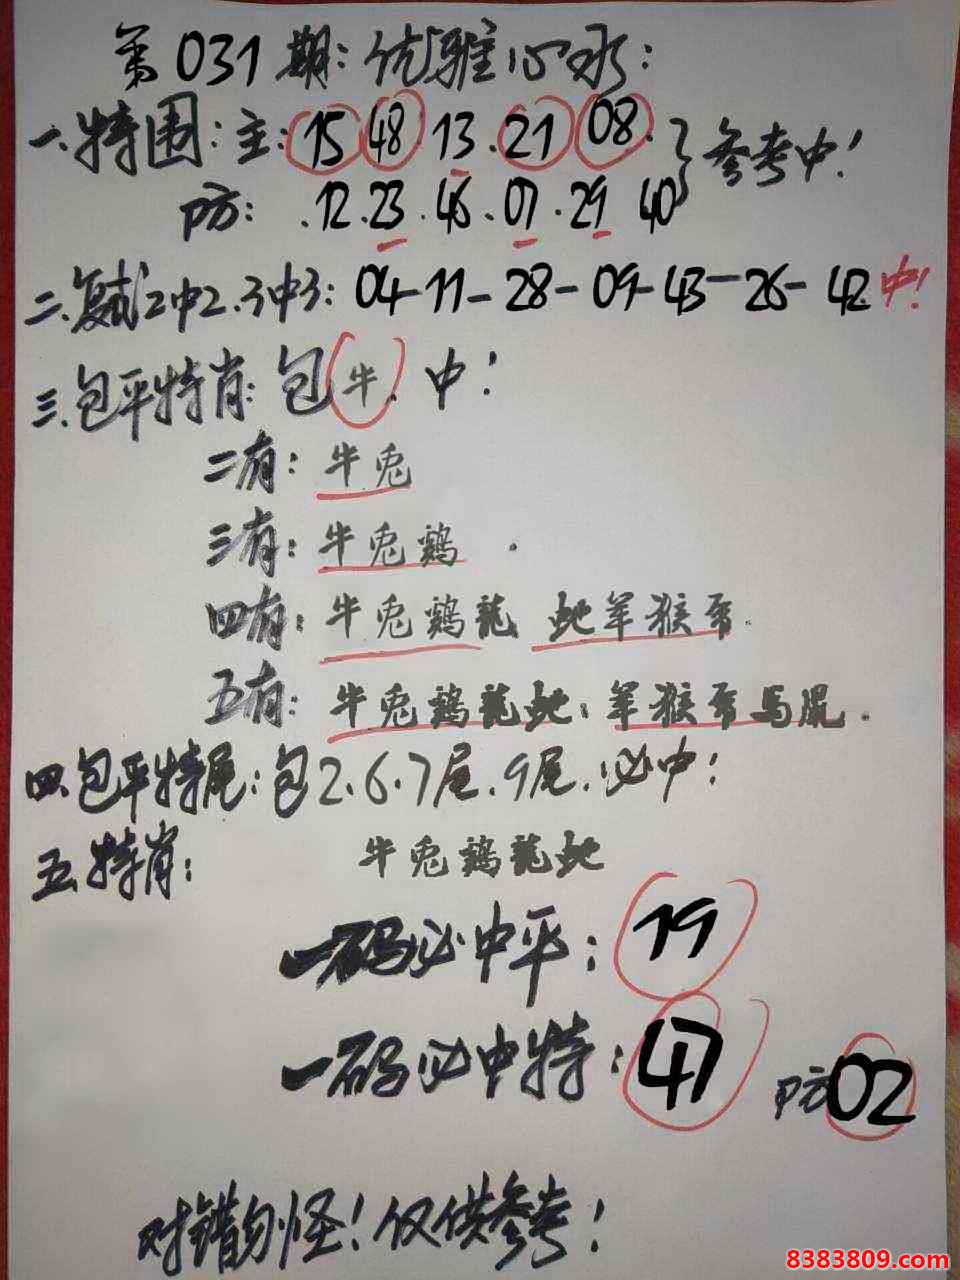 第031期:优雅心水:
一.特围:主:15 48·13·21 08· }参考中!
防:·12·23·46·07·29 40
二.复试2中2.3中3:04-11-28-09-43-26-42 中!
三.包平特肖:包牛.中!
二有:牛兎
三有:牛兎鷄.
四有:牛兎鷄龍 蛇羊猴
五有:牛兎鷄龍蛇:羊猴馬鼠.
四.包平特尾:包2.6.7尾.9尾.必中!
五.特肖: 牛兎鷄龍蛇
一码必中平:19
一码必中特:47 防02
对错勿怪!仅供参考!
8383809.com